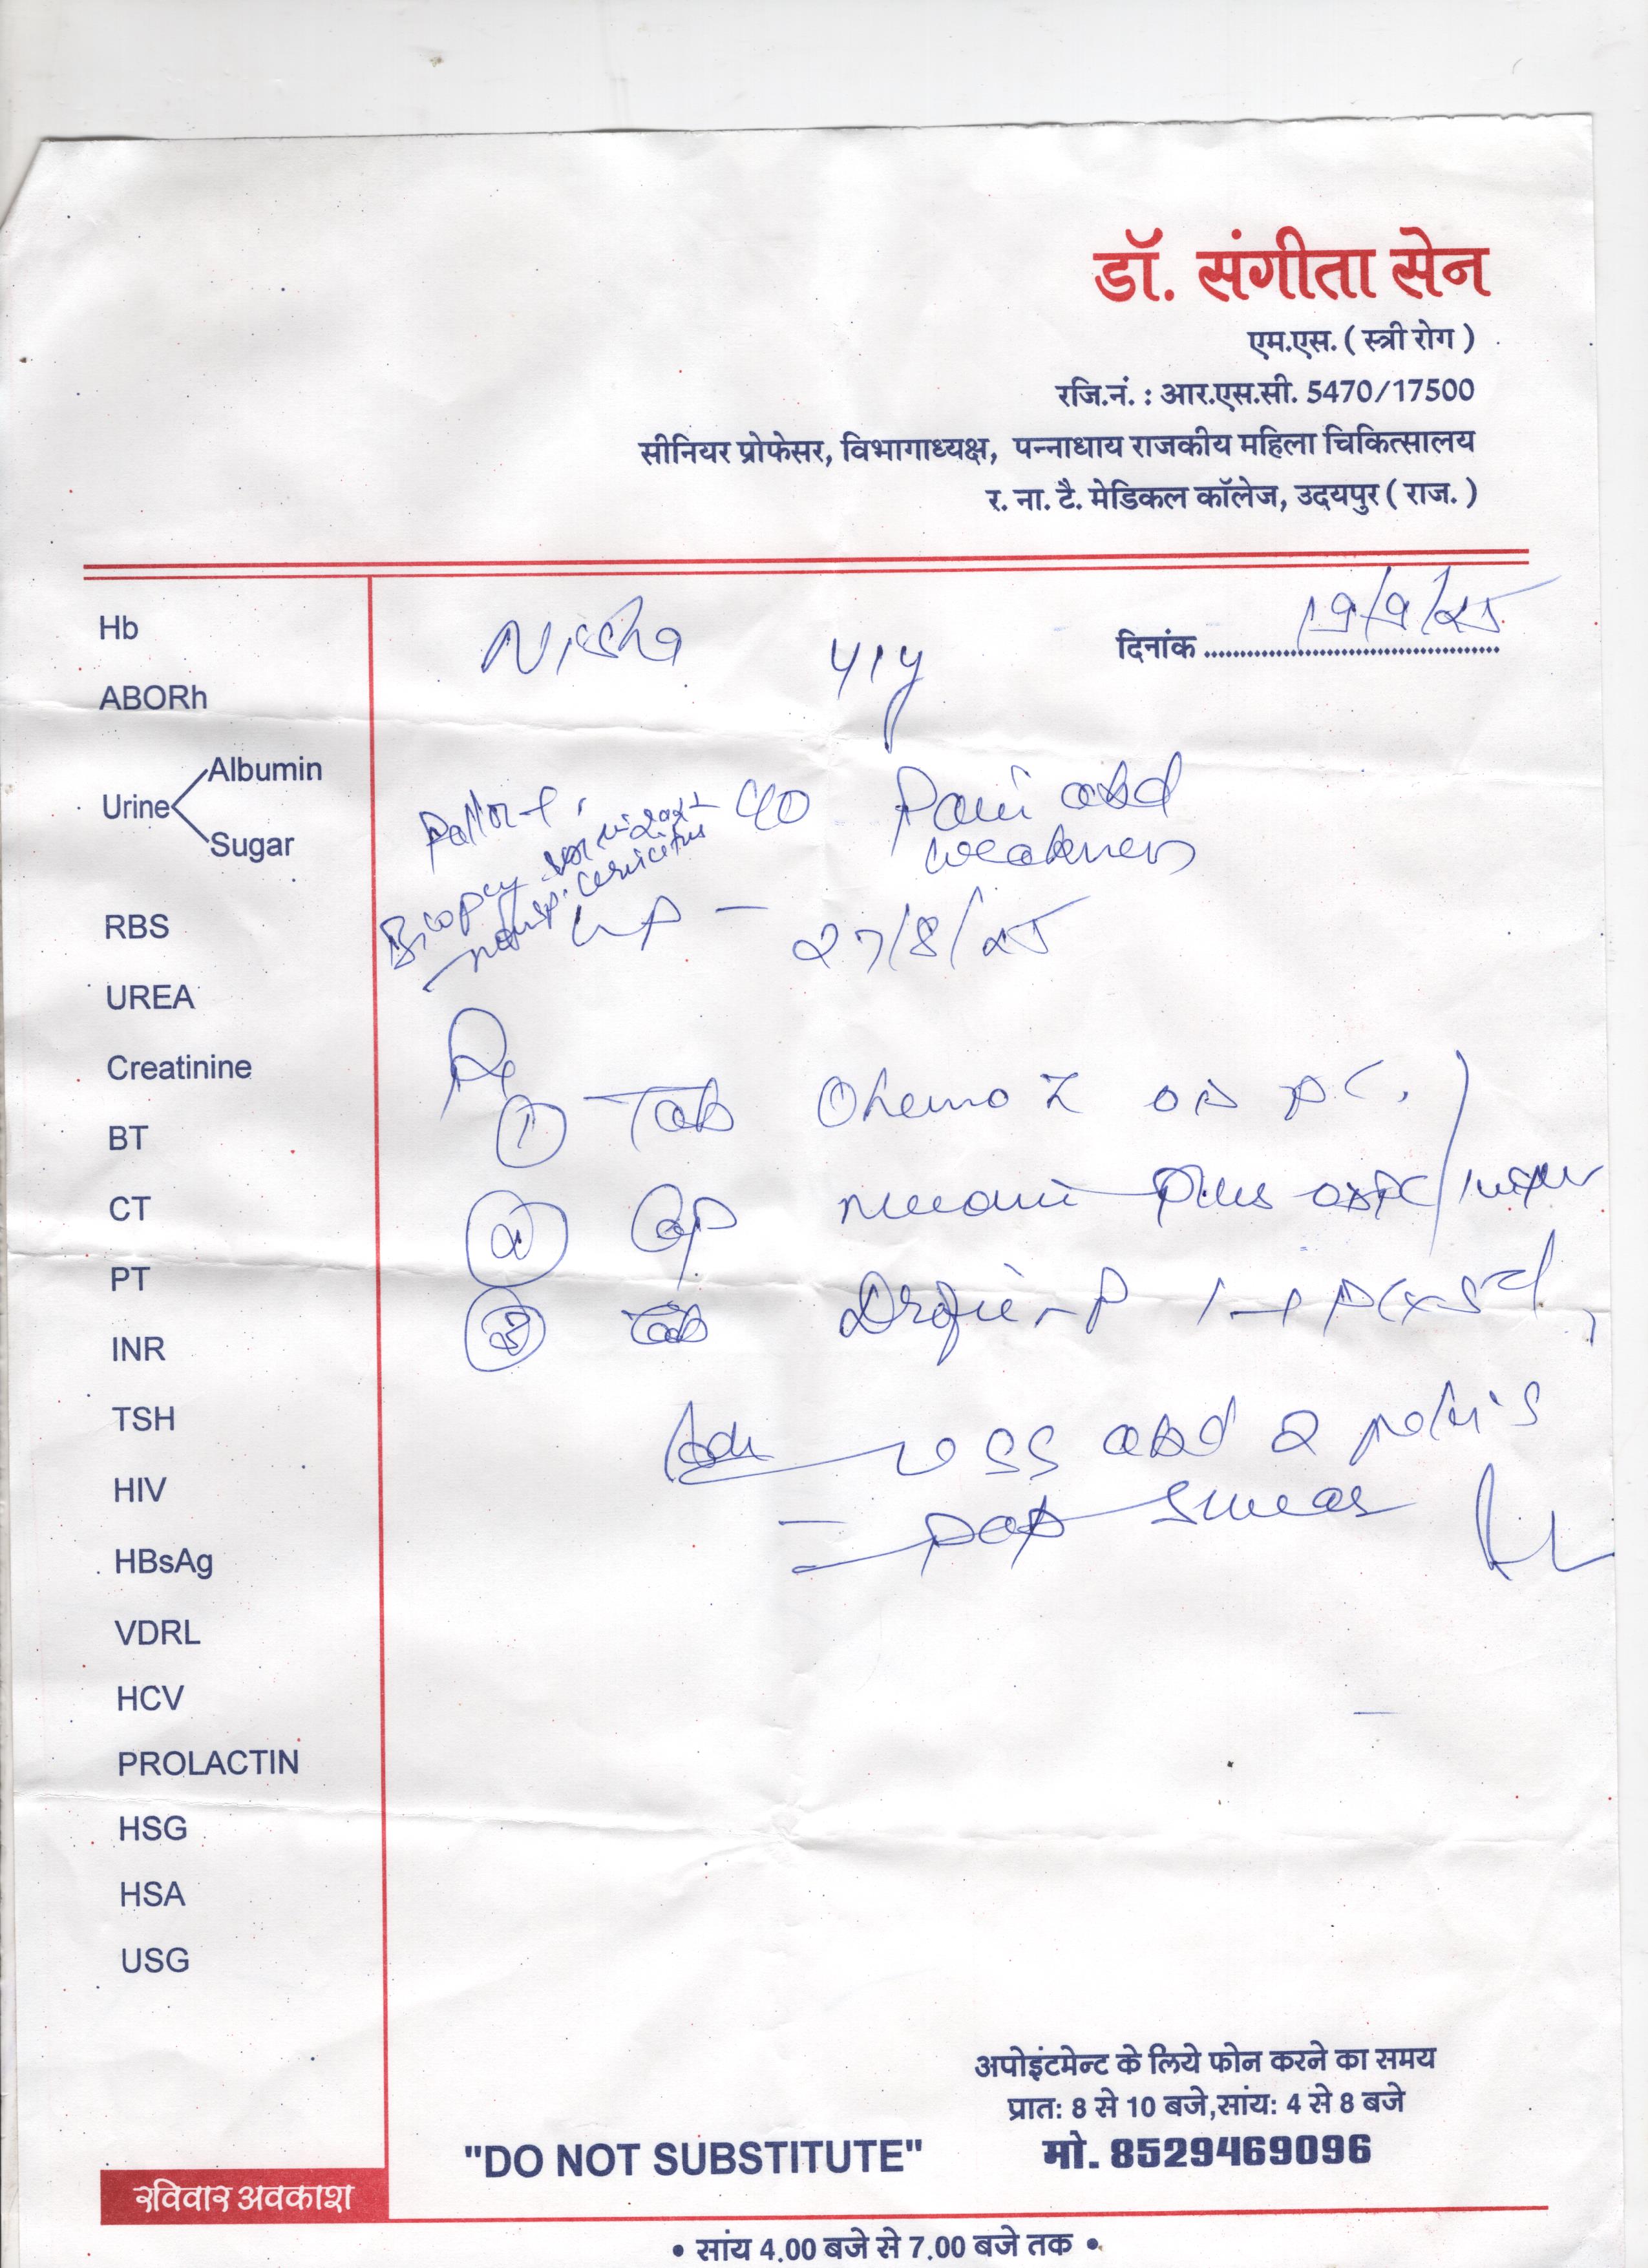 डॉ. संगीता सेन
एम.एस. ( स्त्री रोग )
रजि.नं. : आर.एस.सी. 5470/17500
सीनियर प्रोफेसर, विभागाध्यक्ष, पन्नाधाय राजकीय महिला चिकित्सालय
र. ना. टै. मेडिकल कॉलेज, उदयपुर ( राज. )
दिनांक 19/9/25
Nisha 41y
Hb
ABORh
Urine Albumin
Sugar
RBS
UREA
Creatinine
BT
CT
PT
INR
TSH
HIV
HBsAg
VDRL
HCV
PROLACTIN
HSG
HSA
USG
Pallor
c/o Pain abd
weakness
Biopsy
cervicitis
LMP - 27/8/25
Rx
① Tab OD PC
② Cap Plus
③ Tab
Adv USG abd & pelvis
- Pap smear
अपोइंटमेन्ट के लिये फोन करने का समय
प्रात: 8 से 10 बजे,सांय: 4 से 8 बजे
"DO NOT SUBSTITUTE" मो. 8529469096
रविवार अवकाश
• सांय 4.00 बजे से 7.00 बजे तक •